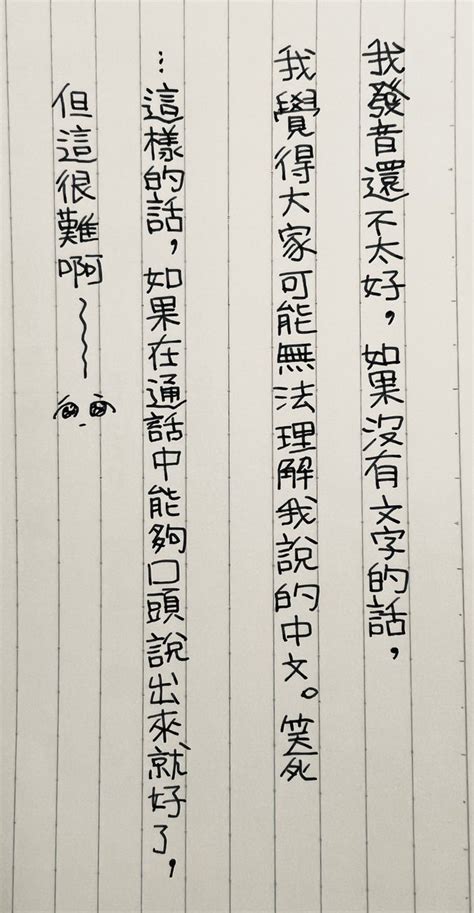 我發音還不太好，如果沒有文字的話，
我覺得大家可能無法理解我說的中文。笑死
…這樣的話，如果在通話中能夠口頭說出來就好了，
但這很難啊～～～